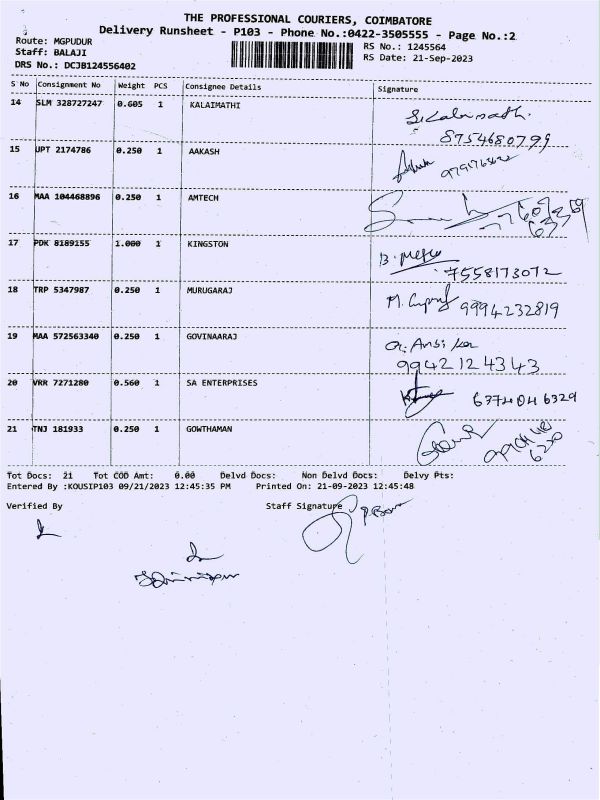 THE PROFESSIONAL COURIERS, COIMBATORE
Delivery Runsheet - P103 - Phone No.:0422-3505555 - Page No.:2
Route: MGPUDUR
RS No.: 1245564
Staff: BALAJI
RS Date: 21-Sep-2023
DRS No.: DCJB124556402
S No Consignment No Weight PCS Consignee Details Signature
14 SLM 328727247 0.605 1 KALAIMATHI
8754680799
15 UPT 2174786 0.250 1 AAKASH
16 MAA 104468896 0.250 1 AMTECH
17 PDK 8189155 1.000 1 KINGSTON
7558173072
18 TRP 5347987 0.250 1 MURUGARAJ
9994232819
19 MAA 572563340 0.250 1 GOVINAARAJ
9942124343
20 VRR 7271280 0.560 1 SA ENTERPRISES
6374046329
21 TNJ 181933 0.250 1 GOWTHAMAN
Tot Docs: 21 Tot COD Amt: 0.00 Delvd Docs: Non Delvd Docs: Delvy Pts:
Entered By :KOUSIP103 09/21/2023 12:45:35 PM Printed On: 21-09-2023 12:45:48
Verified By Staff Signature